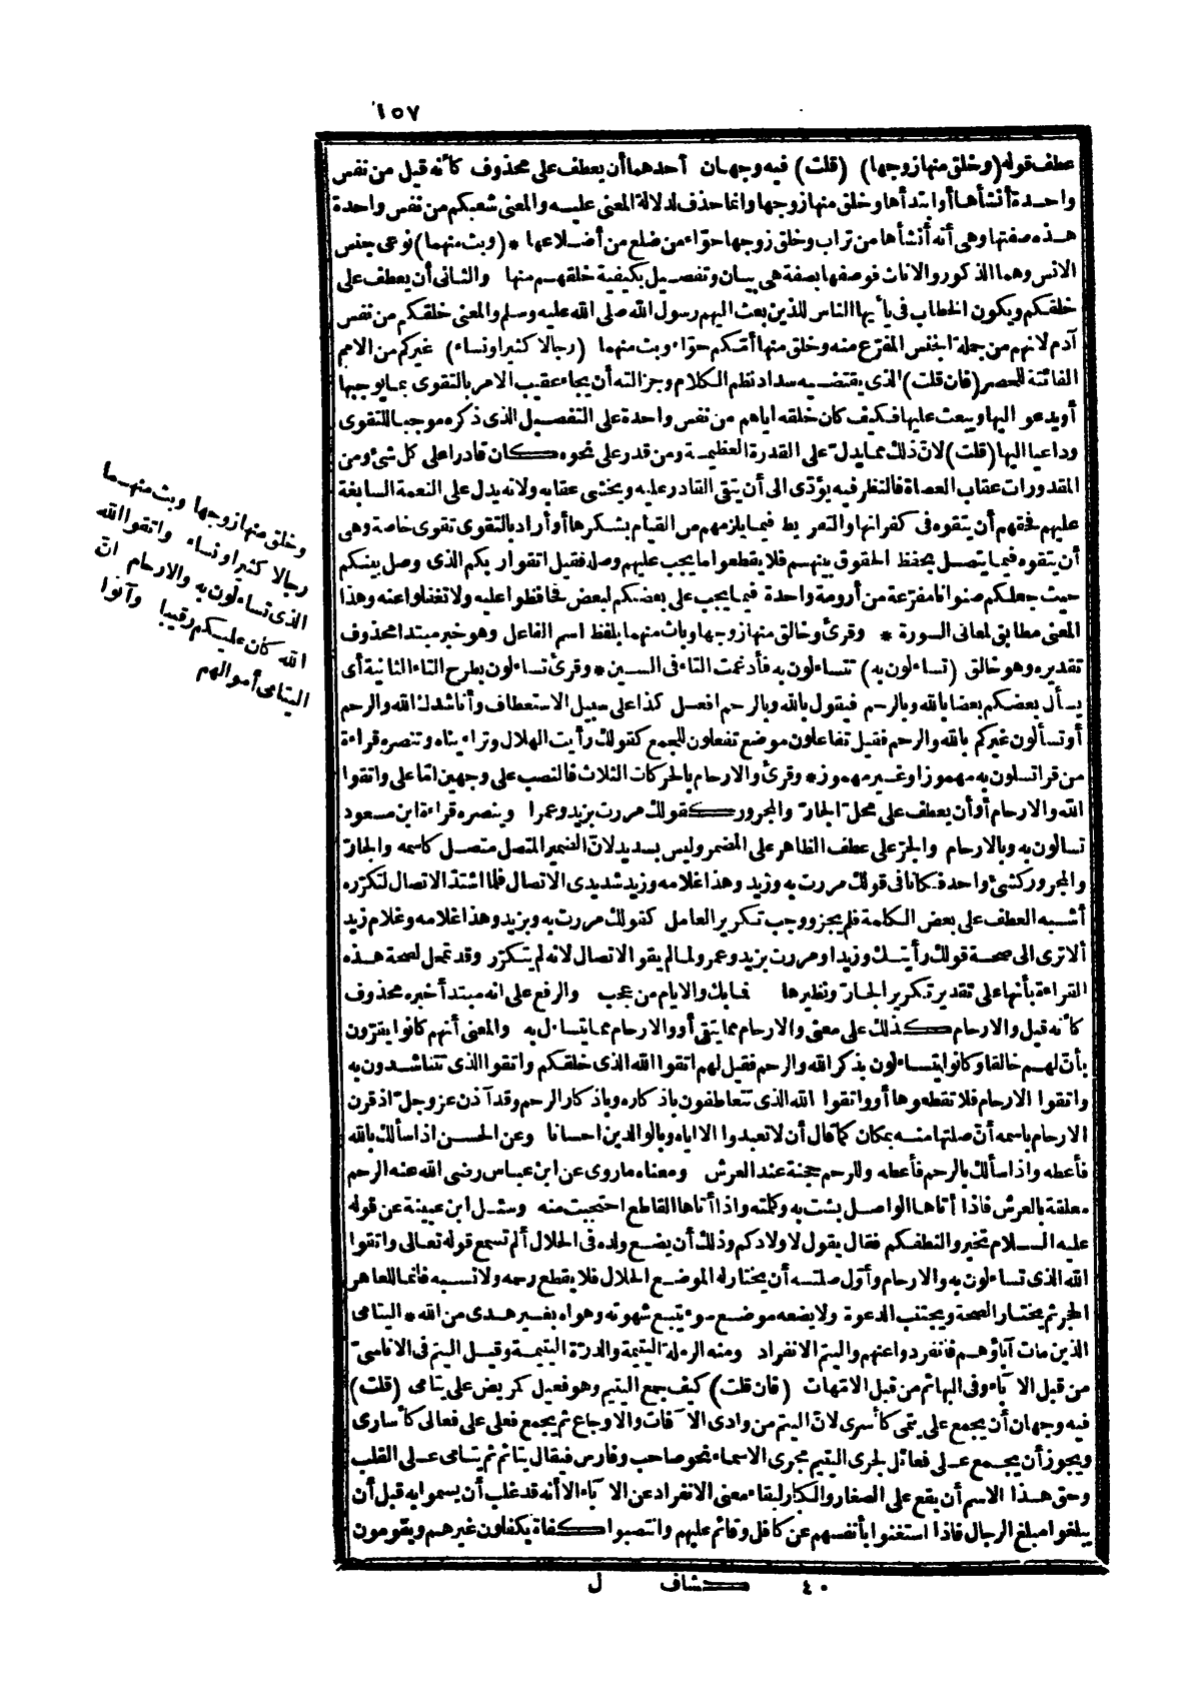 ١٥٧
عطف قوله (وخلق منها زوجها) (قلت) فيه وجهان أحدهما أن يعطف على محذوف كأنه قيل من نفس
واحدة أنشأها أو ابتدأها وخلق منها زوجها وانما حذف لدلالة المعنى عليه والمعنى شعبكم من نفس واحدة
هذه صفتها وهى أنه أنشأها من تراب وخلق زوجها حوّاء من ضلع من أضلاعها * (وبث منهما) نوعى جنس
الانس وهما الذكور والاناث فوصفها بصفة هى بيان وتفصيل بكيفية خلقهم منها والثانى أن يعطف على
خلقكم ويكون الخطاب فى يأيها الناس للذين بعث اليهم رسول الله صلى الله عليه وسلم والمعنى خلقكم من نفس
آدم لانهم من جملة الجنس المفرّع منه وخلق منها أمّكم حوّاء وبث منهما (رجالا كثيرا ونساء) غيركم من الامم
الفائتة للحصر (فان قلت) الذى يقتضيه سداد نظم الكلام وجزالته أن يجاء عقيب الامر بالتقوى بما يوجبها
أو يدعو اليها ويبعث عليها فكيف كان خلقه اياهم من نفس واحدة على التفصيل الذى ذكره موجبا للتقوى
وداعيا اليها (قلت) لانّ ذلك مما يدلّ على القدرة العظيمة ومن قدر على نحوه كان قادرا على كل شئ ومن
المقدورات عقاب العصاة فالنظر فيه يؤدّى الى أن يتقى القادر عليه ويخشى عقابه ولانه يدل على النعمة السابغة
عليهم فحقهم أن يتقوه فى كفرانها والتفريط فيما يلزمهم من القيام بشكرها أو أراد بالتقوى تقوى خاصة وهى
أن يتقوه فيما يتصل بحفظ الحقوق بينهم فلا يقطعوا ما يجب عليهم وصله فقيل اتقوا ربكم الذى وصل بينكم
حيث جعلكم صنوانا مفرّعة من أرومة واحدة فيما يجب على بعضكم لبعض فحافظوا عليه ولا تغفلوا عنه وهذا
المعنى مطابق لمعانى السورة * وقرئ وخالق منها زوجها وباث منهما بلفظ اسم الفاعل وهو خبر مبتدا محذوف
تقديره وهو خالق (تساءلون به) تتساءلون به فأدغمت التاء فى السين * وقرئ تساءلون بطرح التاء الثانية أى
يسأل بعضكم بعضا بالله وبالرحم فيقول بالله وبالرحم افعل كذا على سبيل الاستعطاف وأناشدك الله والرحم
أو تسألون غيركم بالله والرحم فقيل تفاعلون موضع تفعلون للجمع كقولك رأيت الهلال وتراءيناه وتنصره قراءة
من قرا تسلون به مهموزا وغير مهموز * وقرئ والارحام بالحركات الثلاث فالنصب على وجهين امّا على واتقوا
الله والارحام أو أن يعطف على محل الجارّ والمجرور كقولك مررت بزيد وعمرا وينصره قراءة ابن مسعود
تسالون به وبالارحام والجرّ على عطف الظاهر على المضمر وليس بسديد لانّ الضمير المتصل متصل كاسمه والجارّ
والمجرور كشئ واحد فكانا فى قولك مررت به وزيد وهذا غلامه وزيد شديدى الاتصال فلما اشتدّ الاتصال لتكرّره
أشبه العطف على بعض الكلمة فلم يجز ووجب تكرير العامل كقولك مررت به وبزيد وهذا غلامه وغلام زيد
ألا ترى الى صحة قولك رأيتك وزيدا ومررت بزيد وعمرو لما لم يقو الاتصال لانه لم يتكرّر وقد تمحل لصحة هذه
القراءة بأنها على تقدير تكرير الجارّ ونظيرها فما بك والايام من عجب والرفع على انه مبتدأ خبره محذوف
كأنه قيل والارحام كذلك على معنى والارحام مما يتقى أو والارحام مما يتساءل به والمعنى أنهم كانوا يقرّون
بأنّ لهم خالقا وكانوا يتساءلون بذكر الله والرحم فقيل لهم اتقوا الله الذى خلقكم واتقوا الذى تتناشدون به
واتقوا الارحام فلا تقطعوها أو واتقوا الله الذى تتعاطفون باذكاره وباذكار الرحم وقد آذن عز وجلّ اذ قرن
الارحام باسمه أنّ صلتها منه بمكان كما قال أن لا تعبدوا الا اياه وبالوالدين احسانا وعن الحسن اذا سألك بالله
فأعطه واذا سألك بالرحم فأعطه وللرحم حجنة عند العرش ومعناه ما روى عن ابن عباس رضى الله عنه الرحم
معلقة بالعرش فاذا أتاها الواصل بشت به وكلمته واذا أتاها القاطع احتجبت منه وسئل ابن عيينة عن قوله
عليه السلام تخيروا لنطفكم فقال يقول لاولادكم وذلك أن يضع ولده فى الحلال ألم تسمع قوله تعالى واتقوا
الله الذى تساءلون به والارحام وأوّل صلته أن يختار له الموضع الحلال فلا يقطع رحمه ولا نسبه فانما للعاهر
الحجر ثم يختار الصحة ويجتنب الدعوة ولا يضعه موضع سوء يتبع شهوته وهواه بغير هدى من الله * اليتامى
الذين مات آباؤهم فانفردوا عنهم واليتم الانفراد ومنه الرملة اليتيمة والدرّة اليتيمة وقيل اليتم فى الاناسىّ
من قبل الآباء وفى البهائم من قبل الامّهات (فان قلت) كيف جمع اليتيم وهو فعيل كمريض على يتامى (قلت)
فيه وجهان أن يجمع على يتمى كأسرى لانّ اليتم من وادى الآفات والاوجاع ثم يجمع فعلى على فعالى كأسارى
ويجوز أن يجمع على فعائل لجرى اليتيم مجرى الاسماء نحو صاحب وفارس فيقال يتائم ثم يتامى على القلب
وحق هذا الاسم أن يقع على الصغار والكبار لبقاء معنى الانفراد عن الآباء الا أنه قد غلب أن يسموا به قبل أن
يبلغوا مبلغ الرجال فاذا استغنوا بأنفسهم عن كافل وقائم عليهم وانتصبوا كفاة يكفلون غيرهم ويقومون
وخلق منها زوجها وبث منهما
رجالا كثيرا ونساء واتقوا الله
الذى تساءلون به والارحام انّ
الله كان عليكم رقيبا وآتوا
اليتامى أموالهم
٤٠ كشاف ل